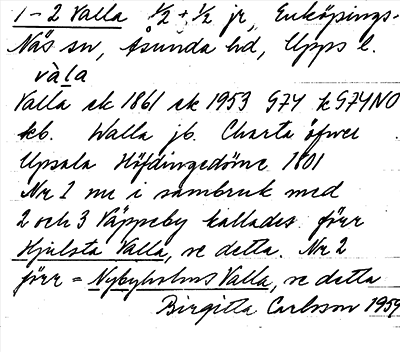 1-2 Valla 1/2 + 1/2 jr, Enköpings-
Näs sn, Åsunda hd, Upps l.
vàla
Valla ek 1861 ek 1953 G7Y k G7Y NO
kb. Walla jb. Charta öfver
Upsala Höfdingedöme 1801
Nr 1 nu i sambruk med
2 och 3 Väppeby kallades förr
Hjulsta Valla, se detta. Nr 2
förr = Nybyholms Valla, se detta
Birgitta Carlsson 1959